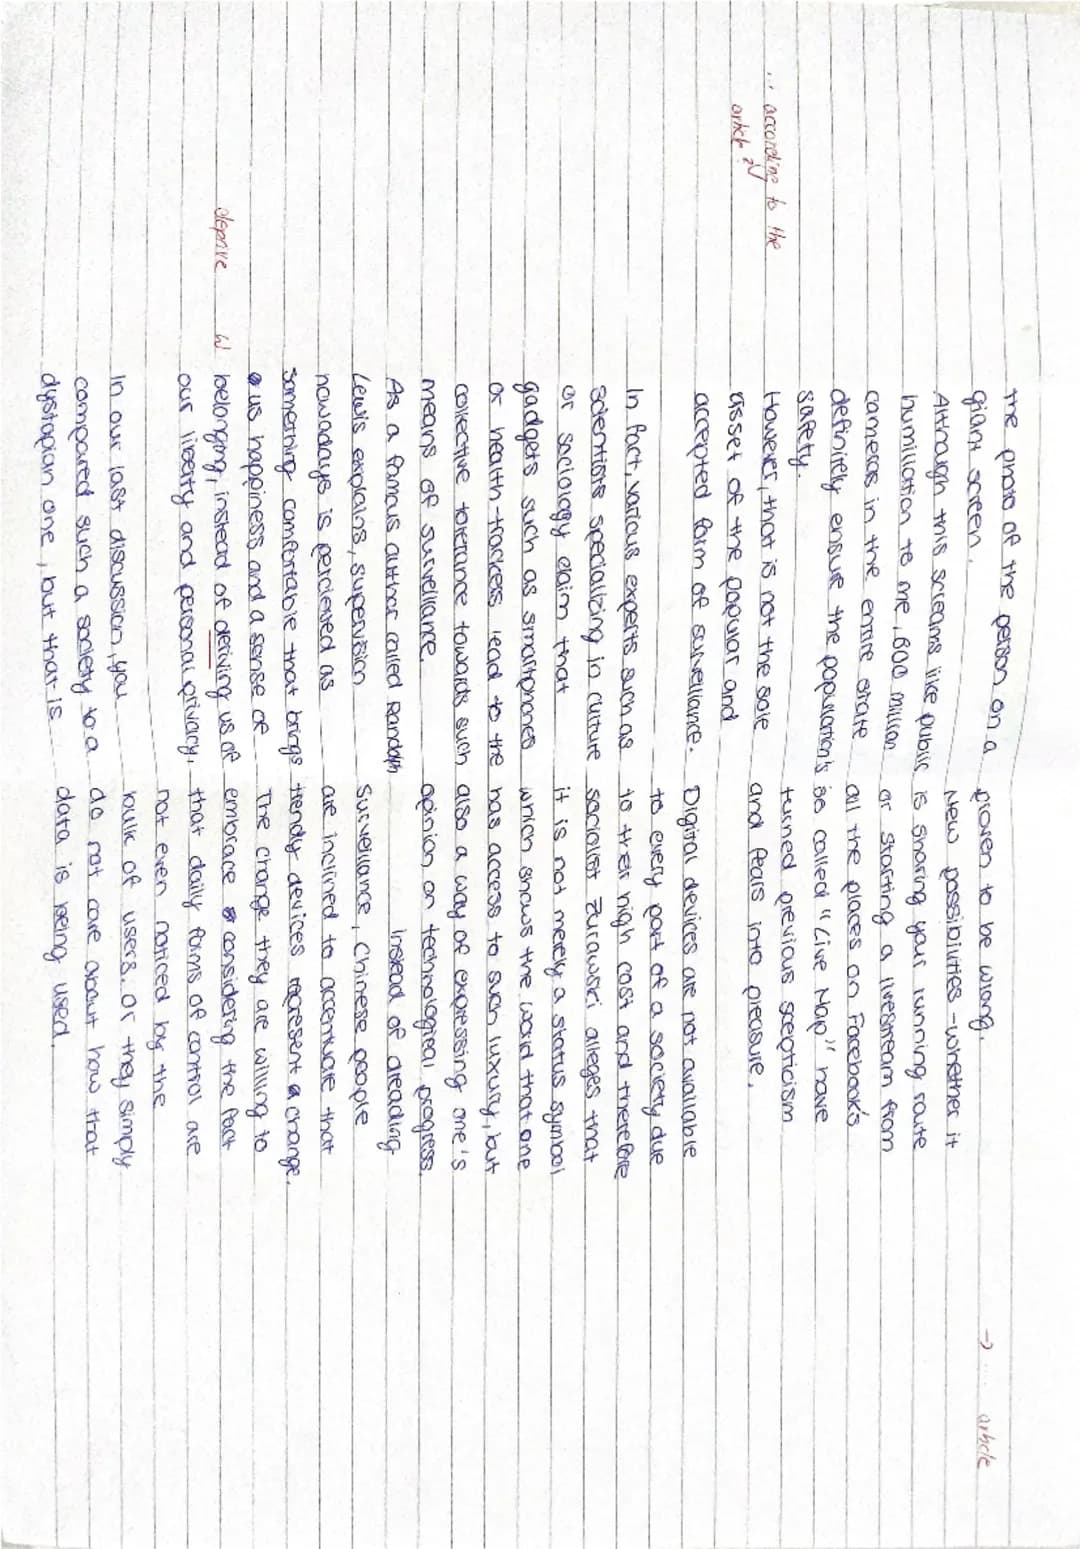 the photo of the person on a
giant screen.
Although this screams like public
humiliation to me, 600 million
cameras in the entire state
definitely ensure the population's
safety.
... according to the
article?
However, that is not the sole
asset of the popular and
accepted form of surveillance.
In fact, various experts such as
scientists specializing in culture
or sociology claim that
gadgets such as smartphones
or health-trackers lead to the
collective tolerance towards such
means of surveillance.
As a famous author called Randolph
Lewis explains, supervision
nowadays is percieved as
something comfortable that brings
us happiness and a sense of
deprive W belonging, instead of deriving us of
our liberty and personal privacy.
In our last discussion, you
compared such a society to a
dystopian one, but that is
proven to be wrong.
-> ... article
New possibilities - whether it
is sharing your running route
or starting a livestream from
all the places on Facebook's
so called "Live Map" have
turned previous scepticism
and fears into pleasure.
Digital devices are not available
to every part of a society due
to their high cost and therefore
sociolist Zurawski alleges that
it is not merely a status symbol
which shows the world that one
has access to such luxury, but
also a way of expressing one's
opinion on technological progress.
Instead of dreading
surveillance, Chinese people
are inclined to accentuate that
trendy devices represent a change.
The change they are willing to
embrace considering the fact
that daily forms of control are
not even noticed by the
bulk of users. Or they simply
do not care about how that
data is being used.